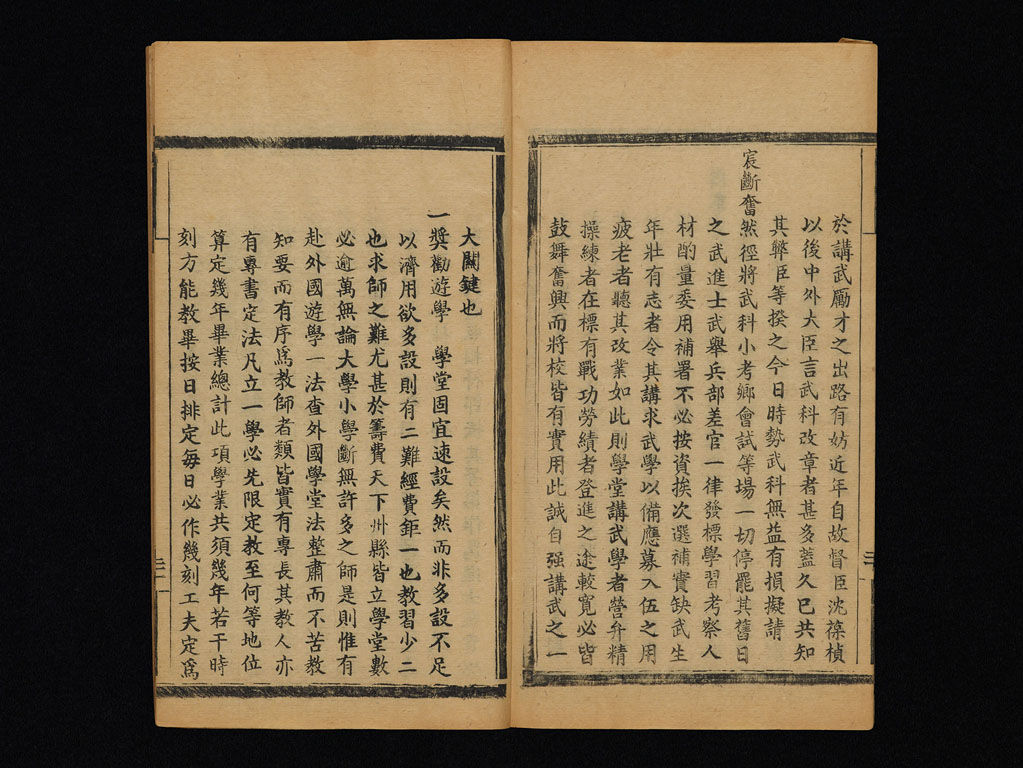 於講武勵才之出路有妨近年自故督臣沈葆楨
以後中外大臣言武科改章者甚多蓋久已共知
其弊臣等揆之今日時勢武科無益有損擬請
宸斷奮然徑將武科小考鄉會試等場一切停罷其舊日
之武進士武舉兵部差官一律發標學習考察人
材酌量委用補署不必按資挨次選補實缺武生
年壯有志者令其講求武學以備應募入伍之用
疲老者聽其改業如此則學堂講武學者營弁精
操練者在標有戰功勞績者登進之途較寬必皆
鼓舞奮興而將校皆有實用此誠自强講武之一
大關鍵也
一獎勸遊學　學堂固宜速設矣然而非多設不足
以濟用欲多設則有二難經費鉅一也教習少二
也求師之難尤甚於籌費天下州縣皆立學堂數
必逾萬無論大學小學斷無許多之師是則惟有
赴外國遊學一法查外國學堂法整肅而不苦教
知要而有序爲教師者類皆實有專長其教人亦
有專書定法凡立一學必先限定教至何等地位
算定幾年畢業總計此項學業共須幾年若干時
刻方能教畢按日排定每日必作幾刻工夫定爲